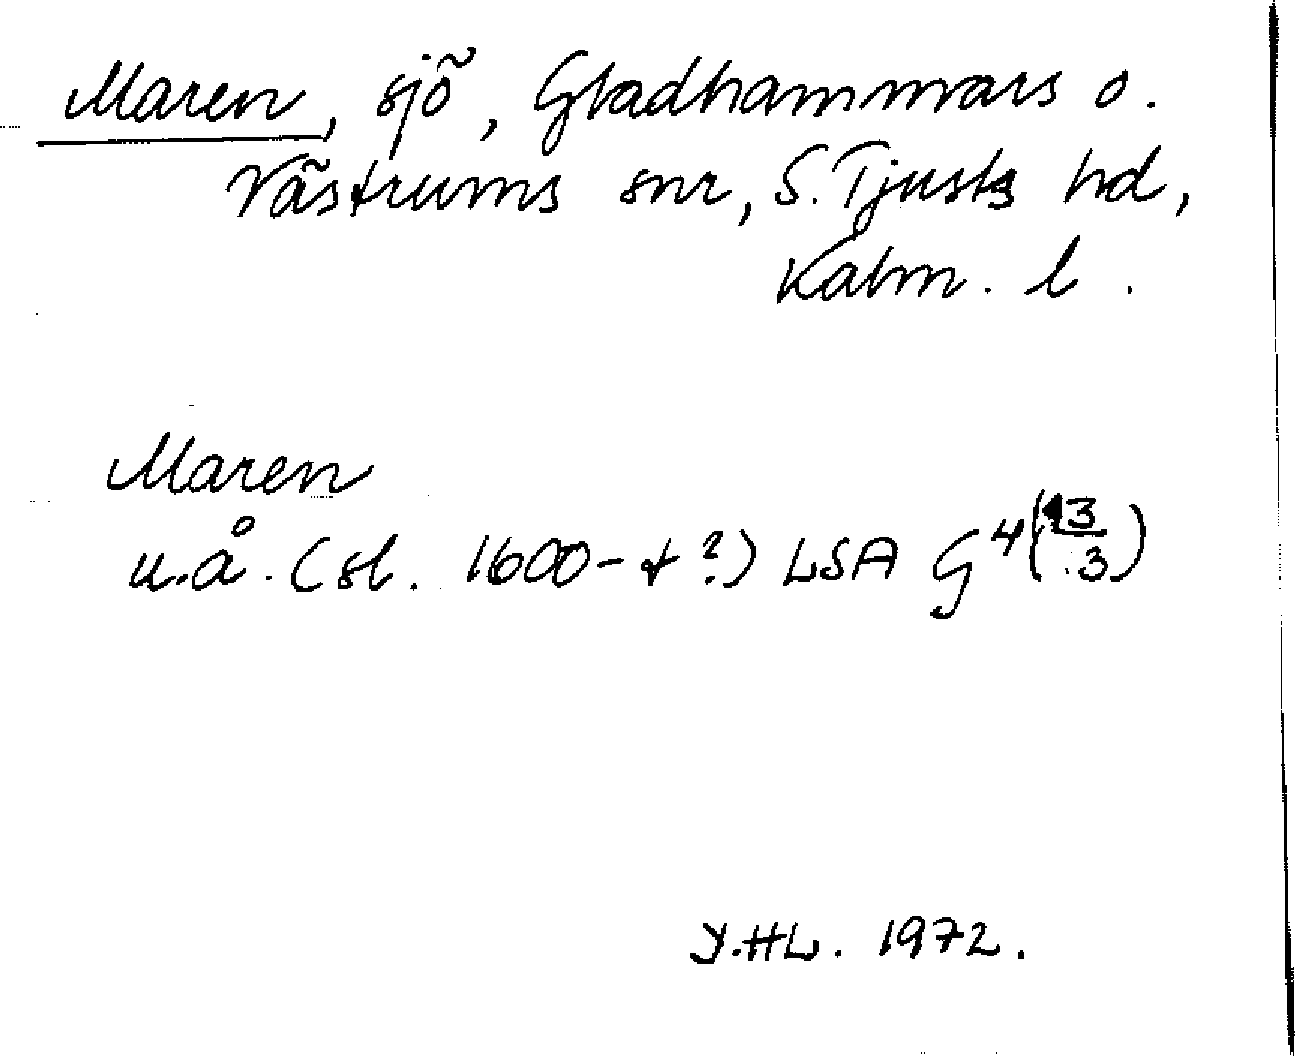 Maren, sjö, Gladhammars o.
Västrums snr, S. Tjusts hd,
Kalm. l.
Maren
u.å. (sl. 1600-t ?) LSA G 4 (3/3)
Y.HL. 1972.